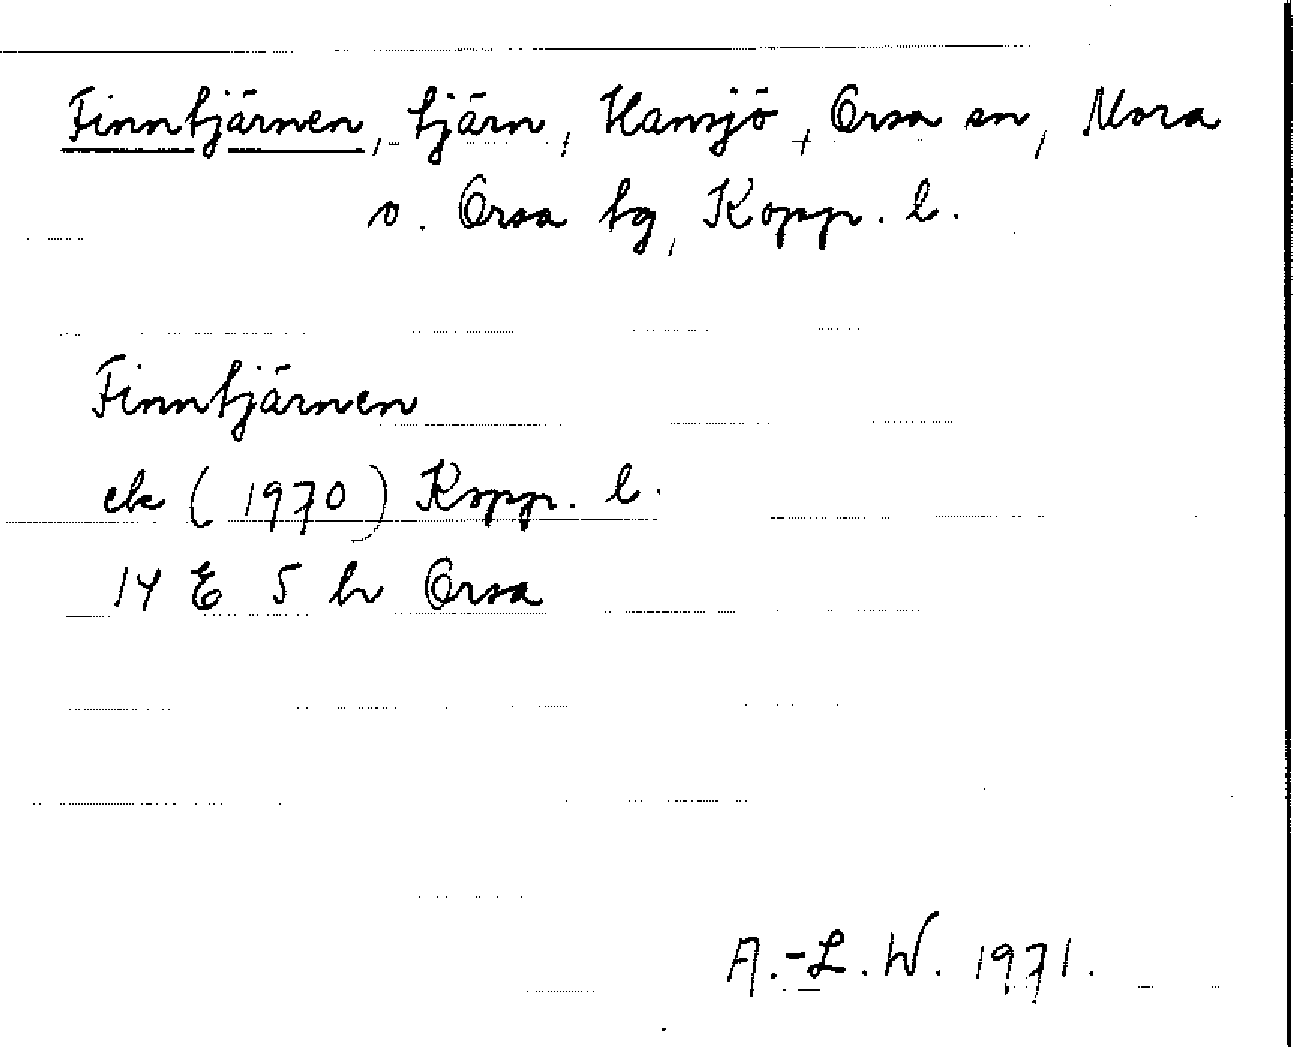 Finntjärnen, tjärn, Hansjö, Orsa sn, Mora
o. Orsa tg, Kopp. l.
Finntjärnen
ek (1970) Kopp. l.
14 E 5 h Orsa
A.-L. W. 1971.